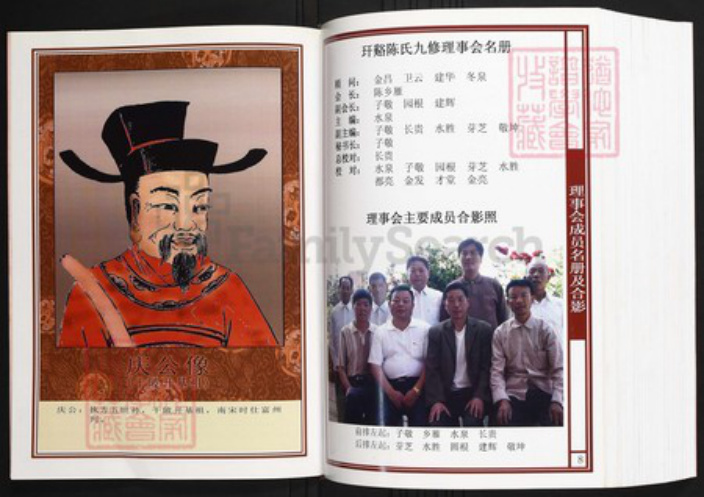 庆公像
玕谿陈氏九修理事会名册
顾 问： 金昌 卫云 建华 冬泉
会 长： 陈乡雁
副会长： 子敬 园根 建辉
主 编： 水泉
副主编： 子敬 长贵 水胜 芽芝 敬坤
秘书长： 子敬
总校对： 长贵
校 对： 水泉 子敬 园根 芽芝 水胜
都亮 金发 才堂 金亮
理事会主要成员合影照
前排左起：子敬 乡雁 水泉 长贵
后排左起：芽芝 水胜 园根 建辉 敬坤
理事会成员名册及合影
8
FamilySearch